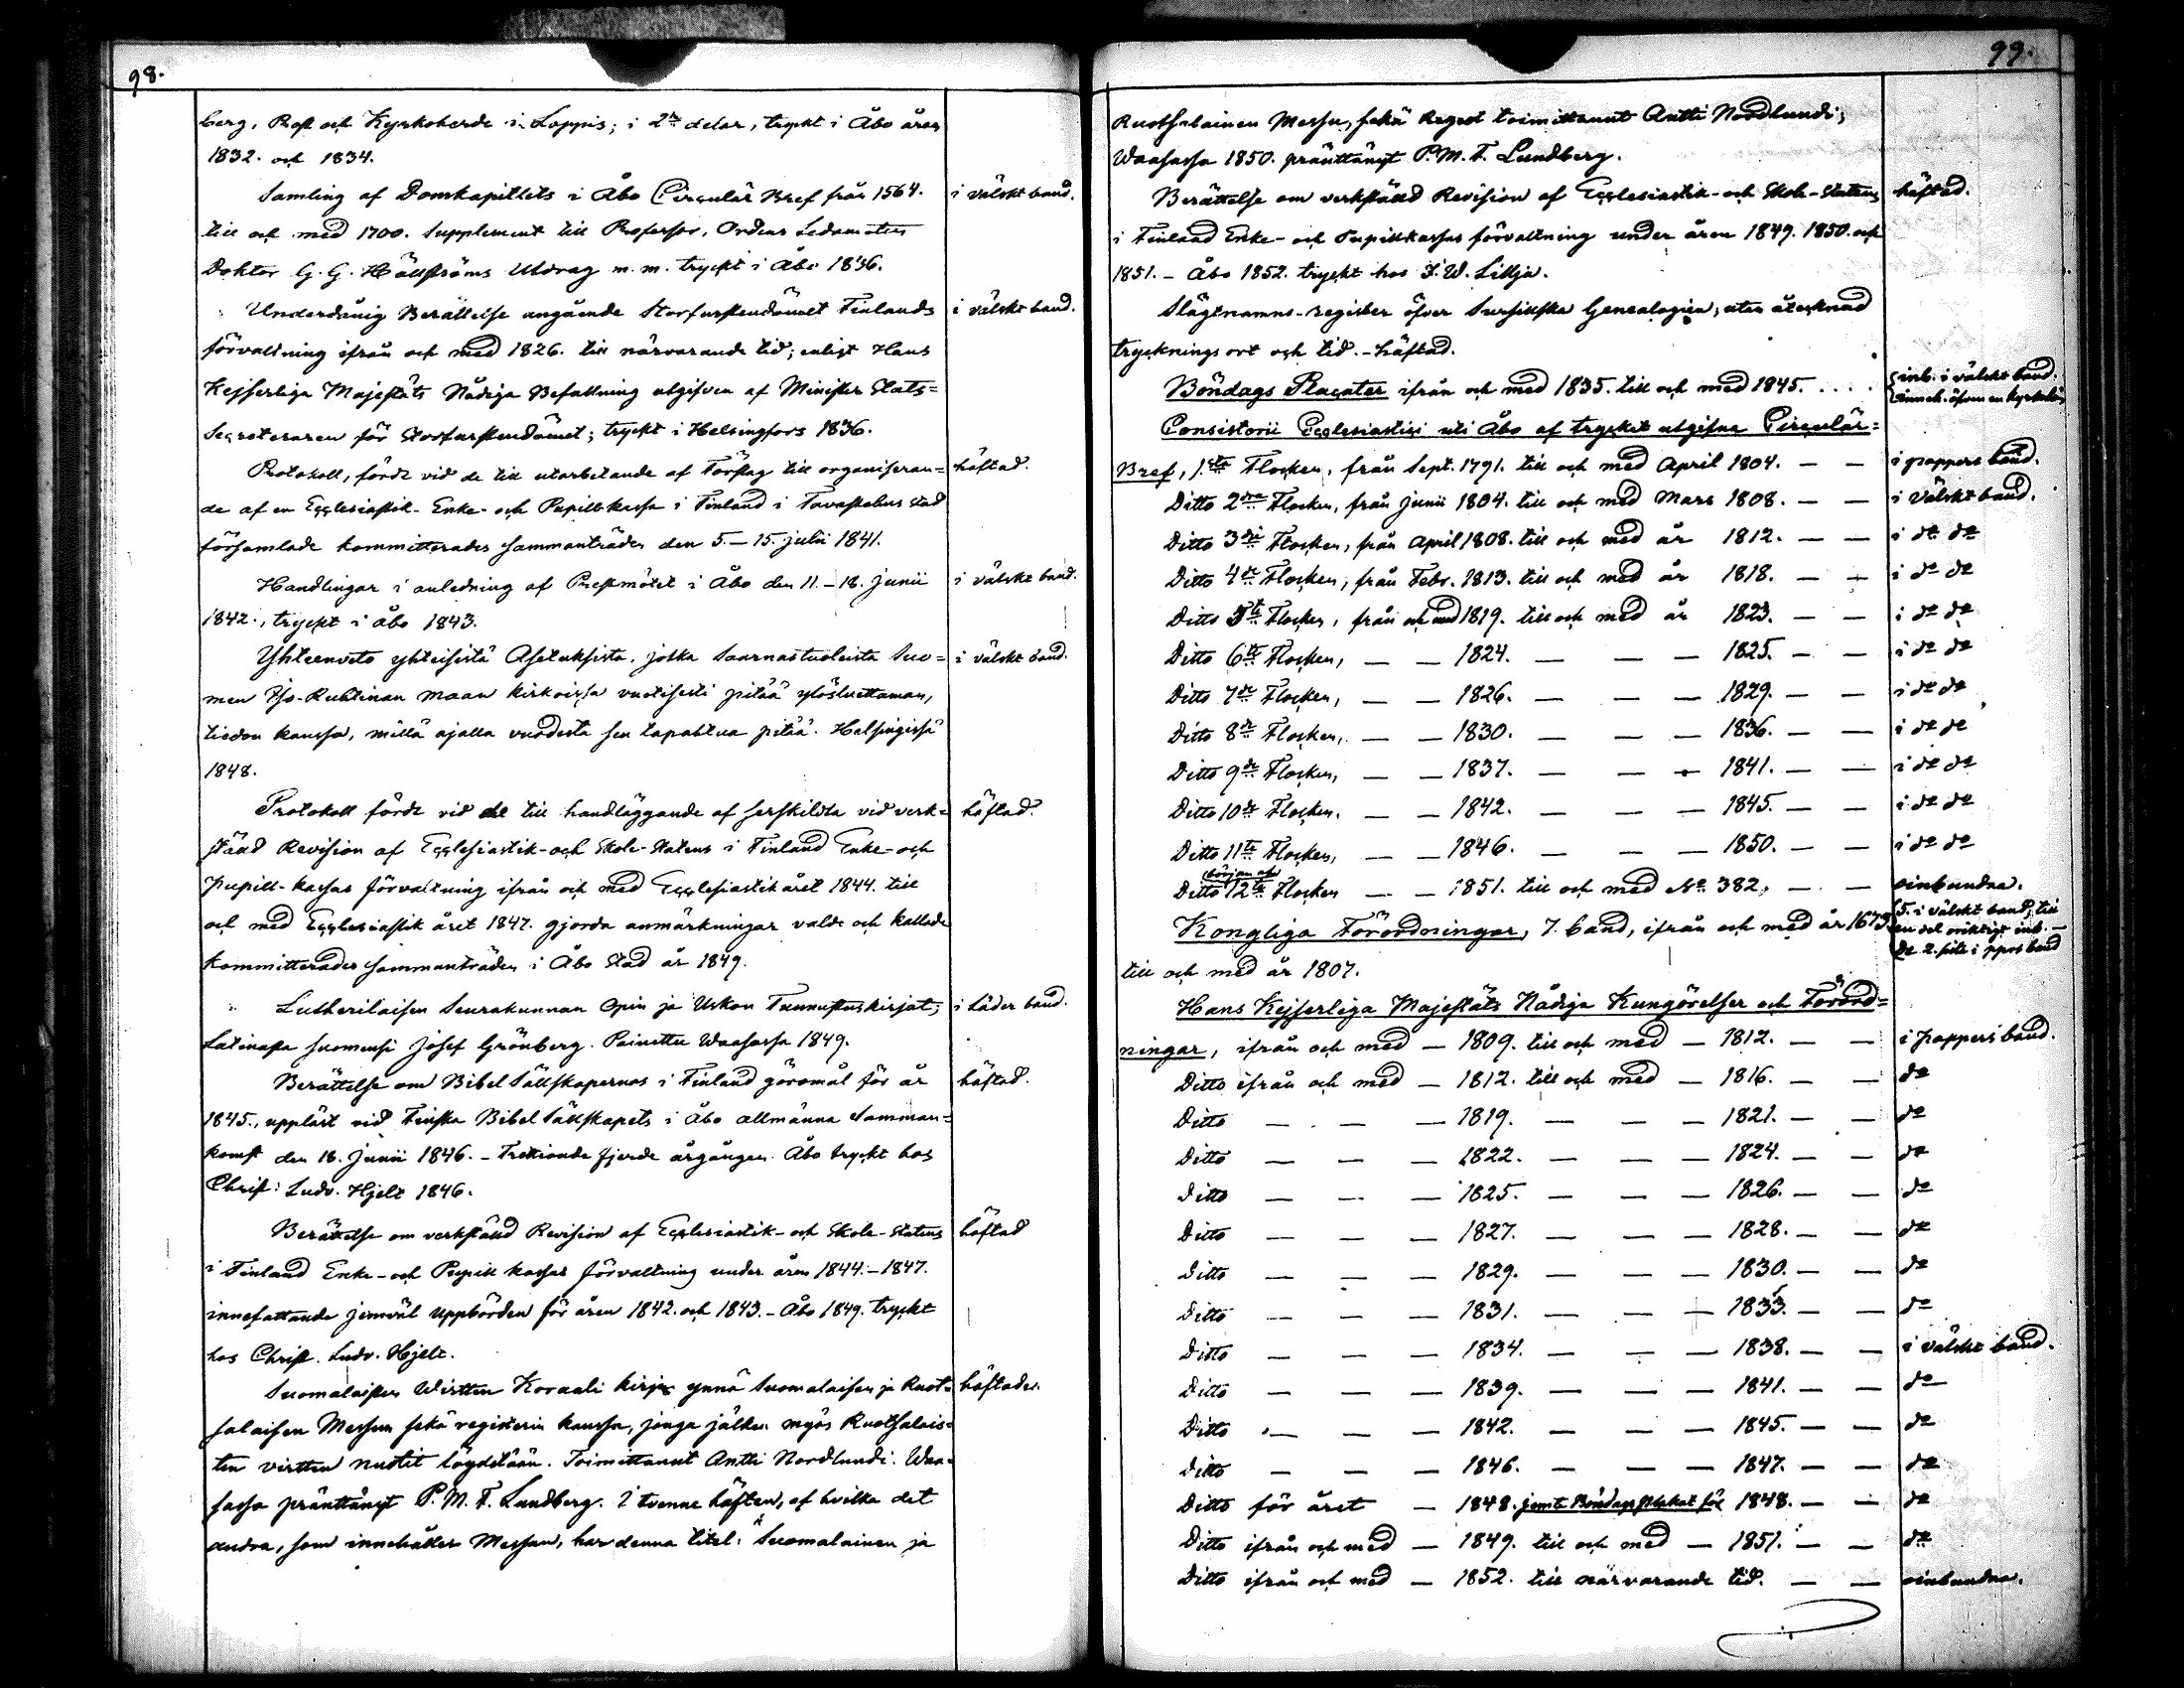 98.
berg, Prost och Kyrkoherde i Loppis; i 2ne delar, tryckt i Åbo åren
1832. och 1834.
Samling af Domkapitlets i Åbo Circulär Bref från 1564. i välskt band.
till och med 1700. Supplement till Professor, Ordens Ledamoten
Doktor G. G. Hällströms Utdrag m. m. tryckt i Åbo 1836.
Underdånig Berättelse angående Storfurstendömet Finlands i välskt band.
förvaltning ifrån och med 1826. till närvarande tid; enligt Hans
Kejserliga Majestäts Nådiga Befallning utgifven af Minister Stats=
Secreteraren för Storfurstendömet; tryckt i Helsingfors 1836.
Protokoll, förde vid de till utarbetande af Förslag till organiseran= häftad.
de af en Ecclesiastik- Enke- och Pupill-kassa i Finland i Tavastehus stad
församlade kommitterades sammanträden den 5.–15. julii 1841.
Handlingar i anledning af Prestmötet i Åbo den 11.–18. Junii i välskt band.
1842., tryckt i Åbo 1843.
Yhteenveto yhteisistä Asetuksista, jotka Saarnastuoleista Suo= i välskt band.
men Iso-Ruhtinan maan kirkoissa vuotisesti pitää ylösluettaman,
tiedon kanssa, millä ajalla vuodesta sen tapahtua pitää. Helsingissä
1848.
Protokoll förde vid de till handläggande af serskildta vid verk= häftad.
ställd Revision af Ecclesiastik- och Skole-Statens i Finland Enke- och
Pupill-kassas förvaltning ifrån och med Ecclesiastikåret 1844. till
och med Ecclesiastik året 1847. gjorda anmärkningar valde och kallade
kommitterades sammanträden i Åbo Stad år 1849.
Lutherilaisen Seurakunnan Opin ja Uskon Tunnustuskirjat; i Läder band.
Latinasta suomensi Josef Grönberg. Painettu Waasassa 1849.
Berättelse om Bibel Sällskapernas i Finland göromål för år häftad.
1845., uppläst vid Finska Bibel Sällskapets i Åbo allmänna Samman=
komst den 18. Junii 1846. – Trettionde fjerde årgången. Åbo tryckt hos
Christ: Ludv. Hjelt 1846.
Berättelse om verkställd Revision af Ecclesiastik- och Skole-Statens häftad
i Finland Enke- och Pupill kassas förvaltning under åren 1844.–1847.
innefattande jemväl uppbörden för åren 1842. och 1843. – Åbo 1849. tryckt
hos Christ. Ludv. Hjelt.
Suomalaisten Wirtten Koraali kirja ynnä Suomalaisen ja Ruot= häftade.
salaisen Messun sekä registerin kanssa, jonga jälken myös Ruotsalais=
ten virtten nuotit löydetään. Toimittanut Antti Nordlundi. Waa=
sassa pränttänyt P. M. F. Lundberg. I tvenne häften, af hvilka det
andra, som innehåller Messan, har denna titel: Suomalainen ja
99.
Ruotsalainen Messu, sekä toimittanut Antti Nordlundi;
Waasassa 1850. pränttänyt P. M. F. Lundberg.
Berättelse om verkställd Revision af Ecclesiastik- och Skole-Statens häftad.
i Finland Enke- och Pupillkassas förvaltning under åren 1849. 1850. och
1851. – Åbo 1852. tryckt hos J. W. Lillja.
Slägtnamns-register öfver Sursillska Genealogien; utan utsatt
trycknings ort och tid. – häftad.
Böndags Placater ifrån och med 1835. till och med 1845. . . . . inb. i välskt band.
Consistorii Ecclesiastici uti Åbo af trycket utgifna Circulär=
Bref, 1.sta Flocken, från Sept. 1791. till och med April 1804. — — i pappers band.
Ditto 2dra Flocken, från Junii 1804. till och med Mars 1808. — — i Välskt band.
Ditto 3dje Flocken, från April 1808. till och med år 1812. — — i do do
Ditto 4de Flocken, från Febr. 1813. till och med år 1818. — — i do do
Ditto 5te Flocken, från och med 1819. till och med år 1823. — — i do do
Ditto 6te Flocken, — — 1824. — — — 1825. — — i do do
Ditto 7de Flocken, — — 1826. — — — 1829. — — i do do
Ditto 8de Flocken, — — 1830. — — — 1836. — — i do do
Ditto 9de Flocken, — — 1837. — — — 1841. — — i do do
Ditto 10de Flocken. — — 1842. — — — 1845. — — i do do
Ditto 11te Flocken, — — 1846. — — — 1850. — — i do do
början af
Ditto 12te Flocken — — 1851. till och med No 382. — — oinbundna.
Kongliga Förordningar, 7. band, ifrån och med år 1673 5. i välskt band, till
en del oriktigt inb. —
till och med år 1807. de 2. sista i pprs band
Hans Kejserliga Majestäts Nådiga Kungörelser och Förord=
ningar, ifrån och med — 1809. till och med — 1812. — — i pappers band.
Ditto ifrån och med — 1812. till och med — 1816. — — do
Ditto — — — 1819. — — — 1821. — — do
Ditto — — — 1822. — — — 1824. — — do
Ditto — — — 1825. — — — 1826. — — do
Ditto — — — 1827. — — — 1828. — — do
Ditto — — — 1829. — — — 1830. — — do
Ditto — — — 1831. — — — 1833. — — do
Ditto — — — 1834. — — — 1838. — — i välskt band.
Ditto — — — 1839. — — — 1841. — — do
Ditto — — — 1842. — — — 1845. — — do
Ditto — — — 1846. — — — 1847. — — do
Ditto för året — 1848. jemte Böndags plakat för 1848. — — do
Ditto ifrån och med — 1849. till och med — 1851. — — do
Ditto ifrån och med — 1852. till närvarande tid. — — oinbundna.